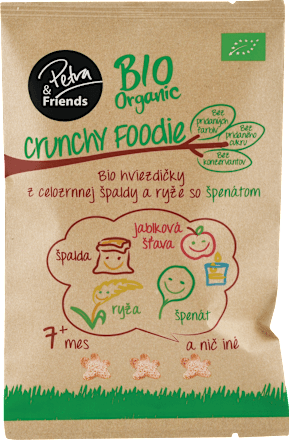 Petra
& Friends
BIO
Organic
Crunchy Foodie
Bez
pridaných
farbív
Bez
pridaného
cukru
Bez
konzervantov
Bio hviezdičky
z celozrnnej špaldy a ryže so špenátom
jablková
šťava
špalda
ryža
špenát
7+
mes
a nič iné